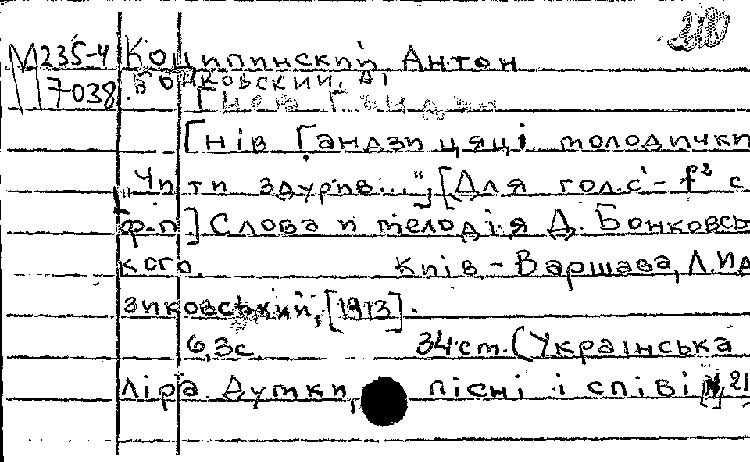 210
М 235-4 Коципинский Антон
7038 Бонковский, Д.
Гнів Гандзи
Гнів Ґандзи цяці молодички
"Чи ти здурів...", [Для гол. с' - f² с
ф-п] Слова и мелодія Д. Бонковсь
кого. Київ. - Варшава, Л. Ид
зиковський, [1913].
6,3с. 34 ст. (Українська
ліра. Думки, пісні і співі №21